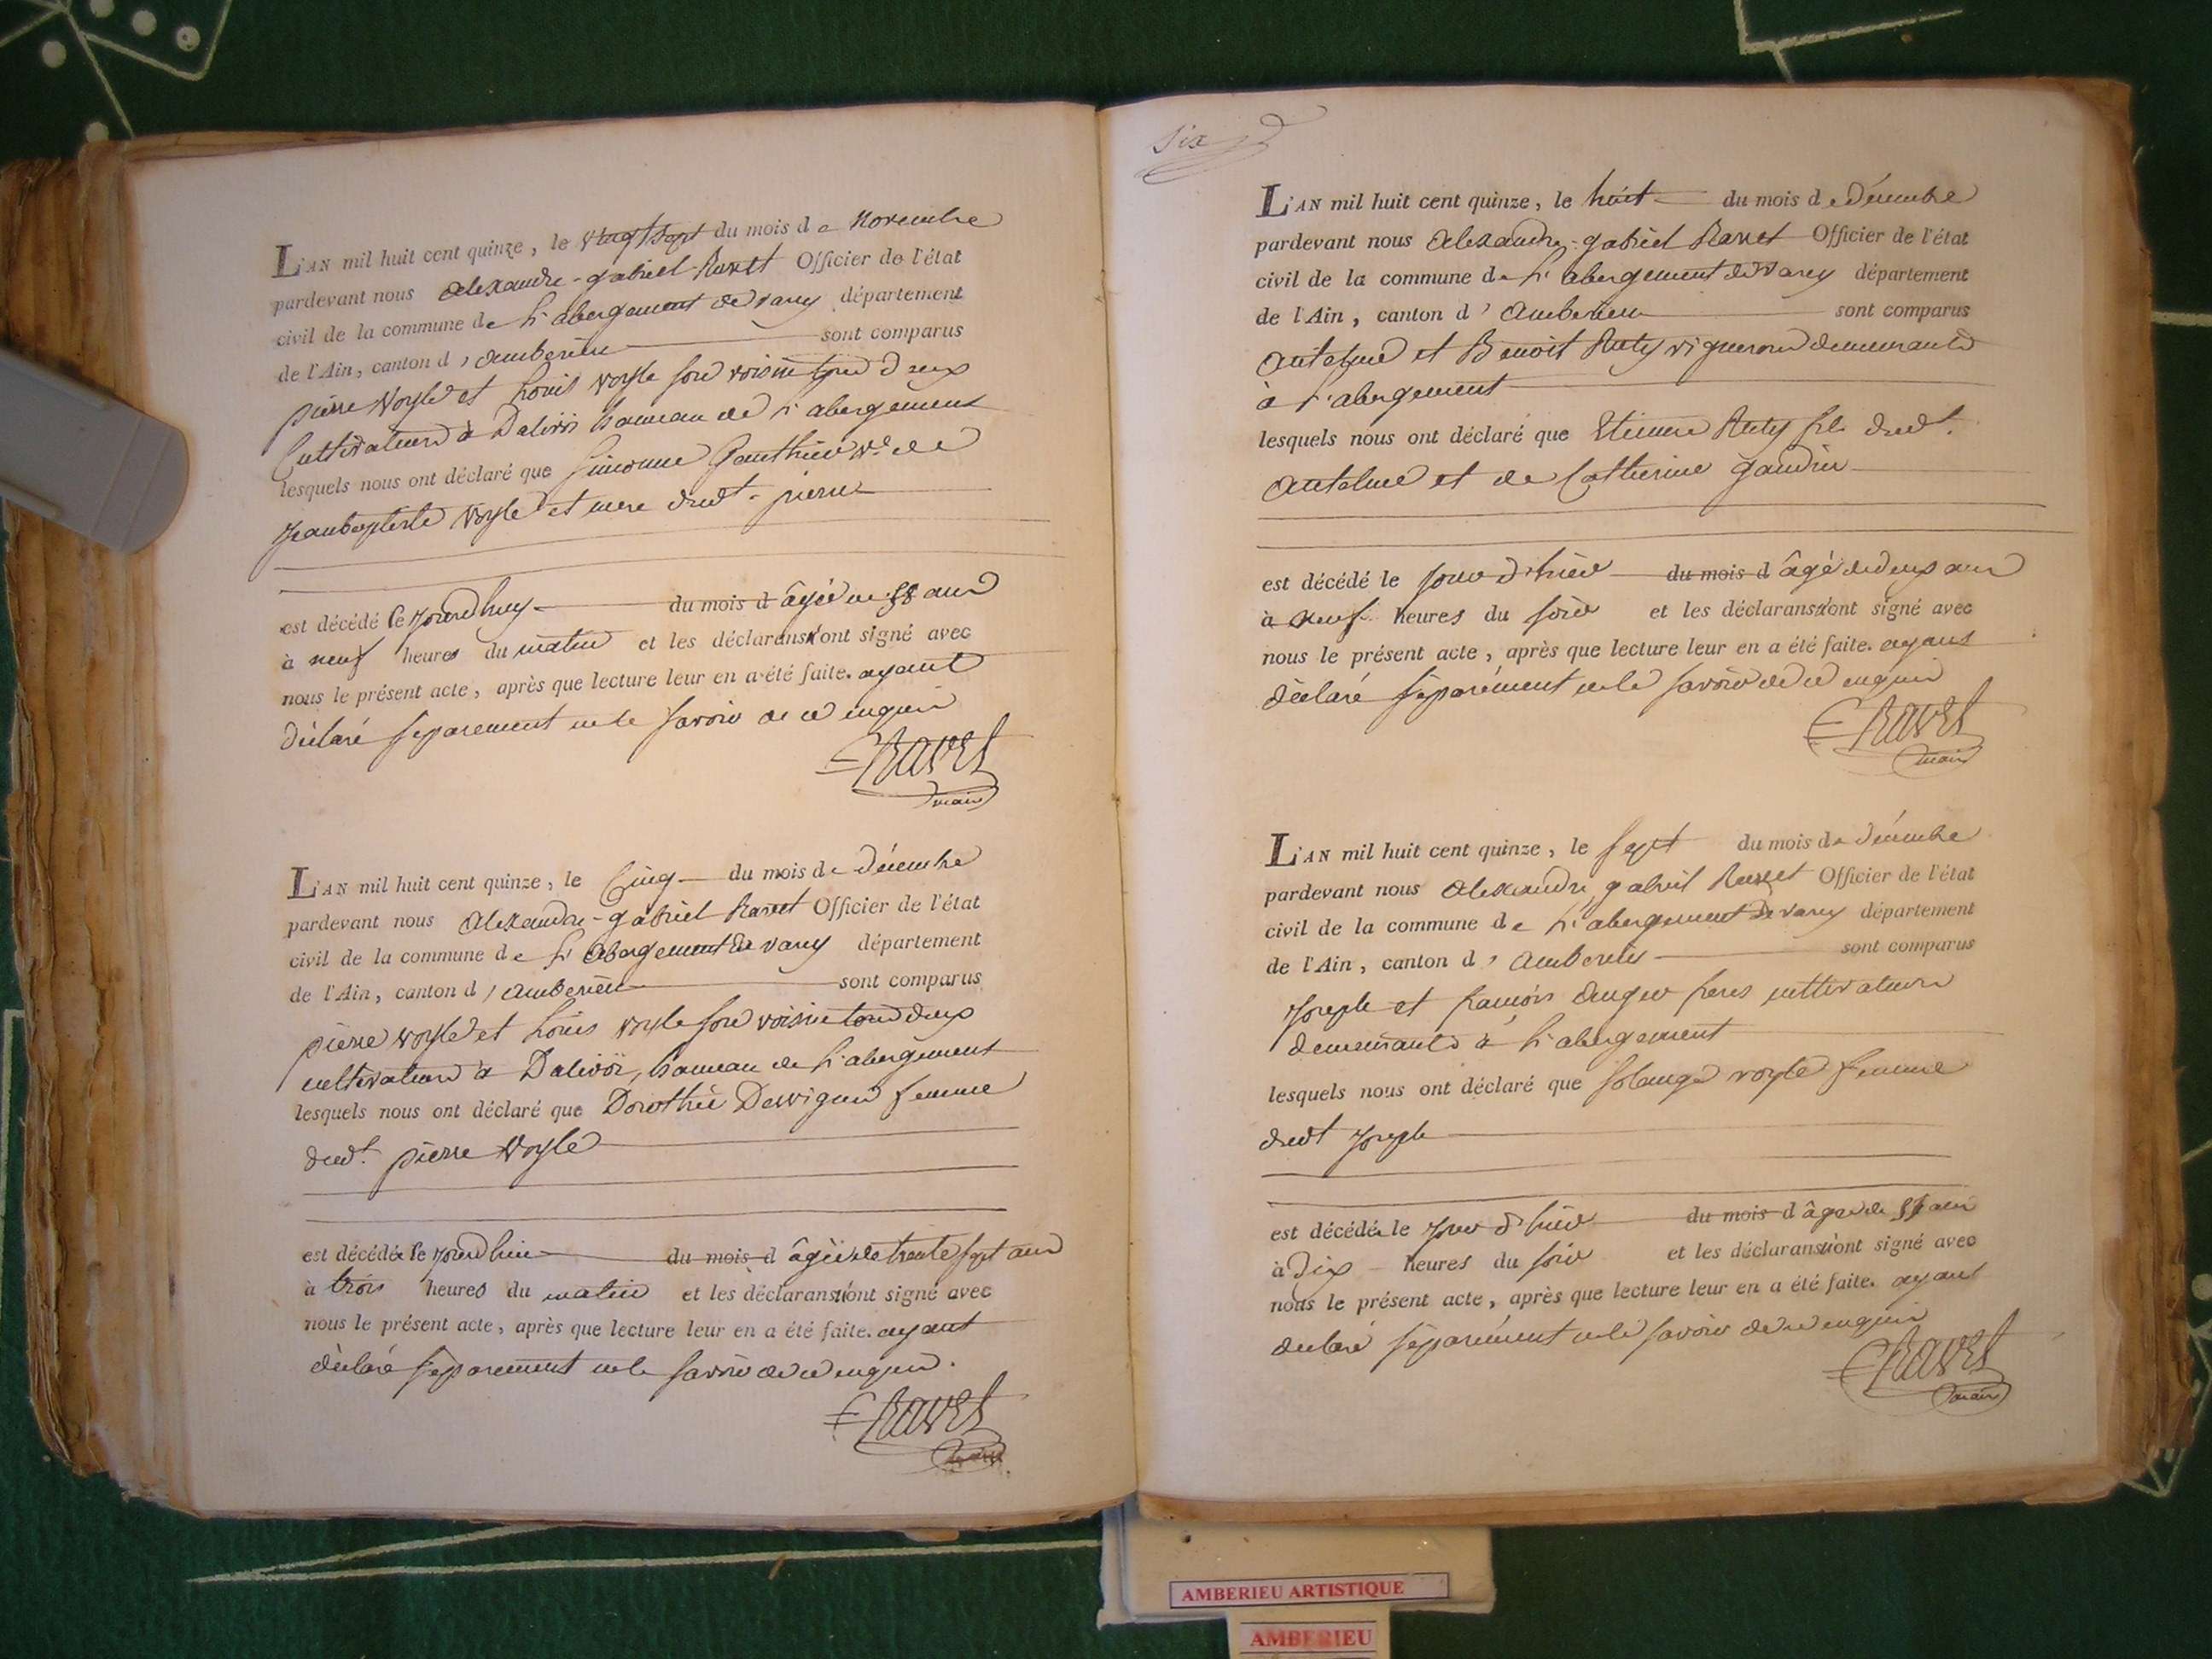 L'AN mil huit cent quinze, le vingt sept du mois de Novembre
pardevant nous Alexandre-gabriel Ravet Officier de l'état
civil de la commune de L'abergement de varey département
de l'Ain, canton d'amberieu sont comparus
pierre voyle et Louis voyle son voisin tous deux
Cultivateurs à Dalivoi hameau de L'abergement
lesquels nous ont déclaré que Simonne Gauthier Ve de
Jeanbaptiste Voyle et mere dudt. pierre
est décédé le jourdhuy du mois d âgée de 58 ans
à neuf heures du matin et les déclarans n'ont signé avec
nous le présent acte, après que lecture leur en a été faite. ayant
déclaré separement ne le savoir de ce enquis
Ravet
maire
L'AN mil huit cent quinze, le Cinq du mois de décembre
pardevant nous Alexandre-gabriel Ravet Officier de l'état
civil de la commune de L'abergement de varey département
de l'Ain, canton d'amberieu sont comparus
pierre voyle et Louis voyle son voisin tous deux
cultivateurs à Dalivoi, hameau de L'abergement
lesquels nous ont déclaré que Dorothée femme
dudt. pierre Voyle
est décédée le jourdhui du mois d âgée de trente sept ans
à trois heures du matin et les déclarans n'ont signé avec
nous le présent acte, après que lecture leur en a été faite. ayant
déclaré séparement ne le savoir de ce enquis.
Ravet
Six
L'AN mil huit cent quinze, le huit du mois de décembre
pardevant nous Alexandre-gabriel Ravet Officier de l'état
civil de la commune de L'abergement de varey département
de l'Ain, canton d'Amberieu sont comparus
Antelme et Benoit vignerons demeurants
à L'abergement
lesquels nous ont déclaré que Etienne fils dudt.
Antelme et de Catherine gaudin
est décédé le jour d'hier du mois d âgé de deux ans
à neuf heures du soir et les déclarans n'ont signé avec
nous le présent acte, après que lecture leur en a été faite. ayans
déclaré séparément ne le savoir de ce enquis
Ravet
maire
L'AN mil huit cent quinze, le sept du mois de décembre
pardevant nous Alexandre gabriel Ravet Officier de l'état
civil de la commune de L'abergement de varey département
de l'Ain, canton d'Amberieu sont comparus
Joseph et françois freres cultivateurs
demeurants à L'abergement
lesquels nous ont déclaré que Solange voyle femme
dudt Joseph
est décédée le jour d'hier du mois d âgée de ans
à dix heures du soir et les déclarans n'ont signé avec
nous le présent acte, après que lecture leur en a été faite. ayant
declaré séparément ne le savoir de ce enquis
Ravet
maire
AMBERIEU ARTISTIQUE
AMBERIEU